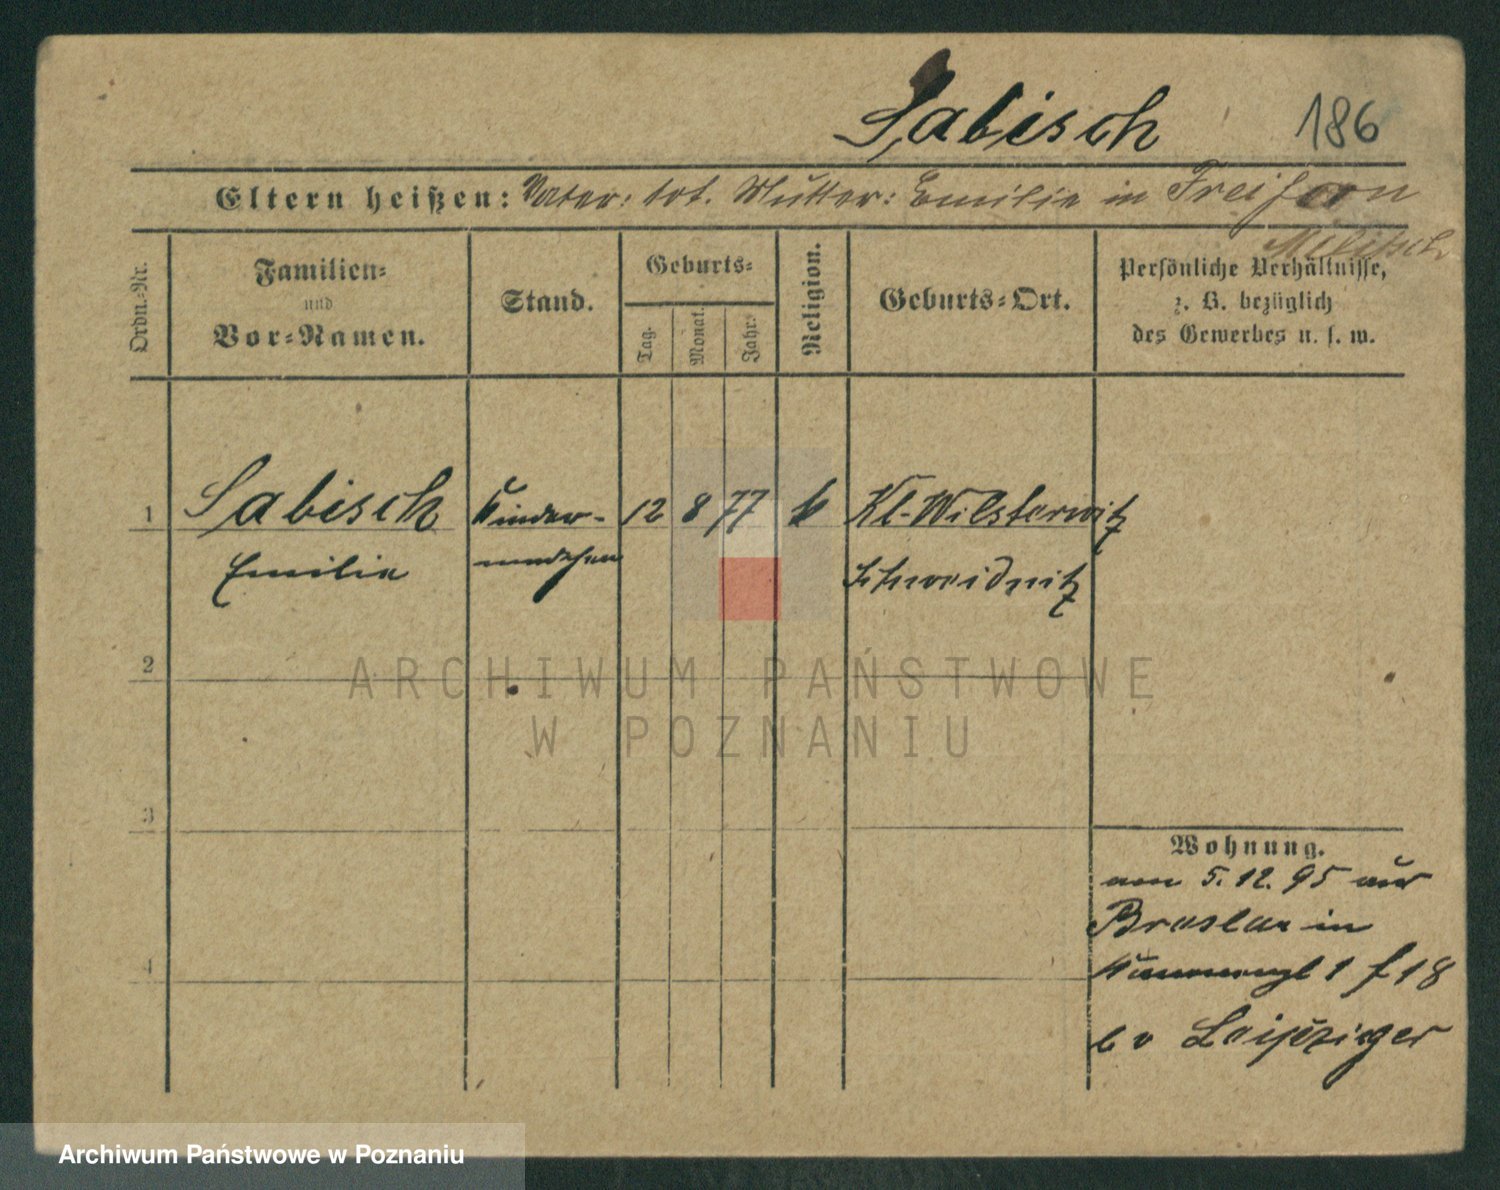 Sabisch
186
Eltern heißen: Vater: tot. Mutter: Emilie in Freihan
Militsch
Ordn.-Nr.
Familien-
und
Vor-Namen.
Stand.
Geburts-
Tag.
Monat.
Jahr.
Religion.
Geburts-Ort.
Persönliche Verhältnisse,
z. B. bezüglich
des Gewerbes u. s. w.
1 Sabisch Kinder- 12 8 77 k Kl-Wilsterwitz
Emilie mädchen Schweidnitz
2
3
4
Wohnung.
am 5.12.95 aus
Breslau in
1 f 18
b v Leipziger
ARCHIWUM PAŃSTWOWE
W POZNANIU
Archiwum Państwowe w Poznaniu